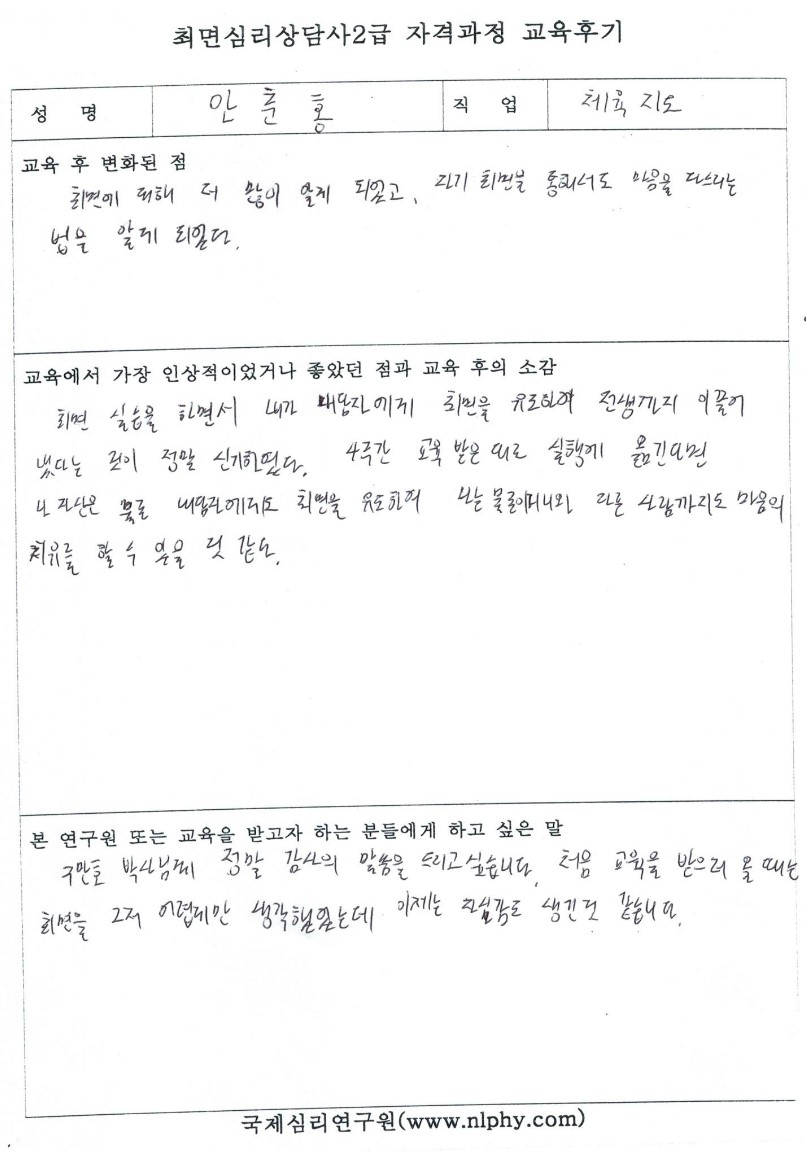 최면심리상담사2급 자격과정 교육후기
성 명 안 훈 홍 직 업 체육 지도
교육 후 변화된 점
최면에 대해 더 많이 알게 되었고, 자기 최면을 통해서도 마음을 다스리는
법을 알게 되었다.
교육에서 가장 인상적이었거나 좋았던 점과 교육 후의 소감
최면 실습을 하면서 내가 내담자에게 최면을 유도하여 전생까지 이끌어
냈다는 것이 정말 신기하였다. 4주간 교육 받은 대로 실행에 옮긴다면
나 자신은 물론 내담자에게도 최면을 유도하여 나는 물론이거니와 다른 사람까지도 마음의
치유를 할 수 있을 것 같다.
본 연구원 또는 교육을 받고자 하는 분들에게 하고 싶은 말
박사님께 정말 감사의 말씀을 드리고 싶습니다. 처음 교육을 받으러 올 때는
최면을 그저 어렵게만 생각했었는데 이제는 자신감도 생긴것 같습니다.
국제심리연구원(www.nlphy.com)